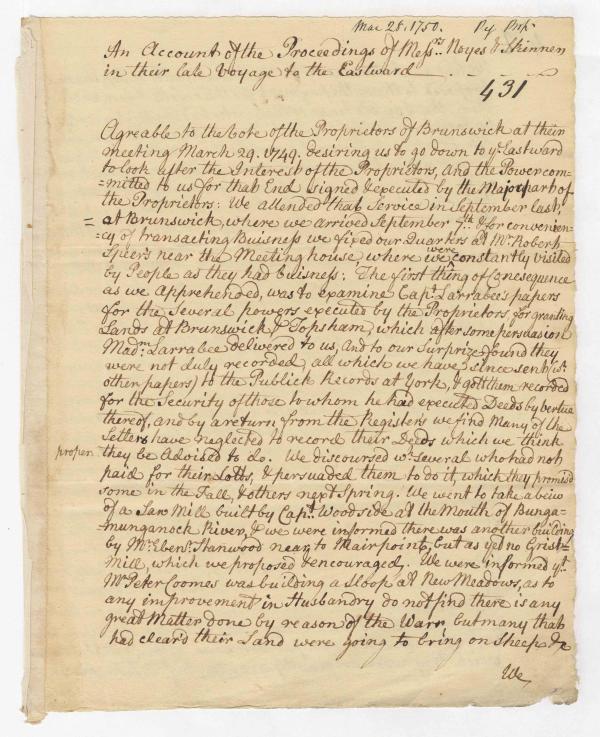 Mar 28. 1750. Pej. Prop.
An Account of the Proceedings of Messrs. Noyes & Skinner
in their late Voyage to the Eastward
431
Agreable to the Vote of the Proprietors of Brunswick at their
meeting March 29. 1749. desiring us to go down to ye. Eastward
to look after the Interest of the Proprietors, and the Power com-
=mitted to us for that End signed & executed by the Major part of
the Proprietors: We attended that Service in September last.
= at Brunswick, where we arrived September 7th. & for convenien-
cy of transacting Buisness we fixed our Quarters at Mr. Robert
Spier's near the Meeting house, where we were constantly visited
by People as they had buisness: The first thing of Consequence
as we Apprehended, was to examine Capt. Larrabee's papers
for the Several powers executed by the Proprietors for granting
Lands at Brunswick & Topsham, which after some persuasion
Madm. Larrabee delivered to us, and to our Surprize found they
were not duly recorded, all which we have since sent (wt.
other papers) to the Publick Records at York, & gott them recorded
for the Security of those to whom he had executed Deeds by vertue
thereof, and by a return from the Registers we find Many of the
Settlers have neglected to record their Deeds which we think
proper they be Advised to do. We discoursed wt. Several who had not
paid for their Lotts, & persuaded them to do it, which they promisd
some in the Fall, & others next Spring. We went to take a view
of a Saw Mill built by Capt. Woodside at the Mouth of Bunga-
munganock River, & we were informed there was another building
by Mr. Ebenr. Stanwood near to Mairpoint, but as yet no Grist=
Mill, which we proposed & encouraged. We were informed yt.
Mr. Peter Coomes was building a Sloop at New Meadows, as to
any improvement in Husbandry do not find there is any
great Matter done by reason of the Warr, but many that
had clear'd their Land were going to bring on Sheep &c
We